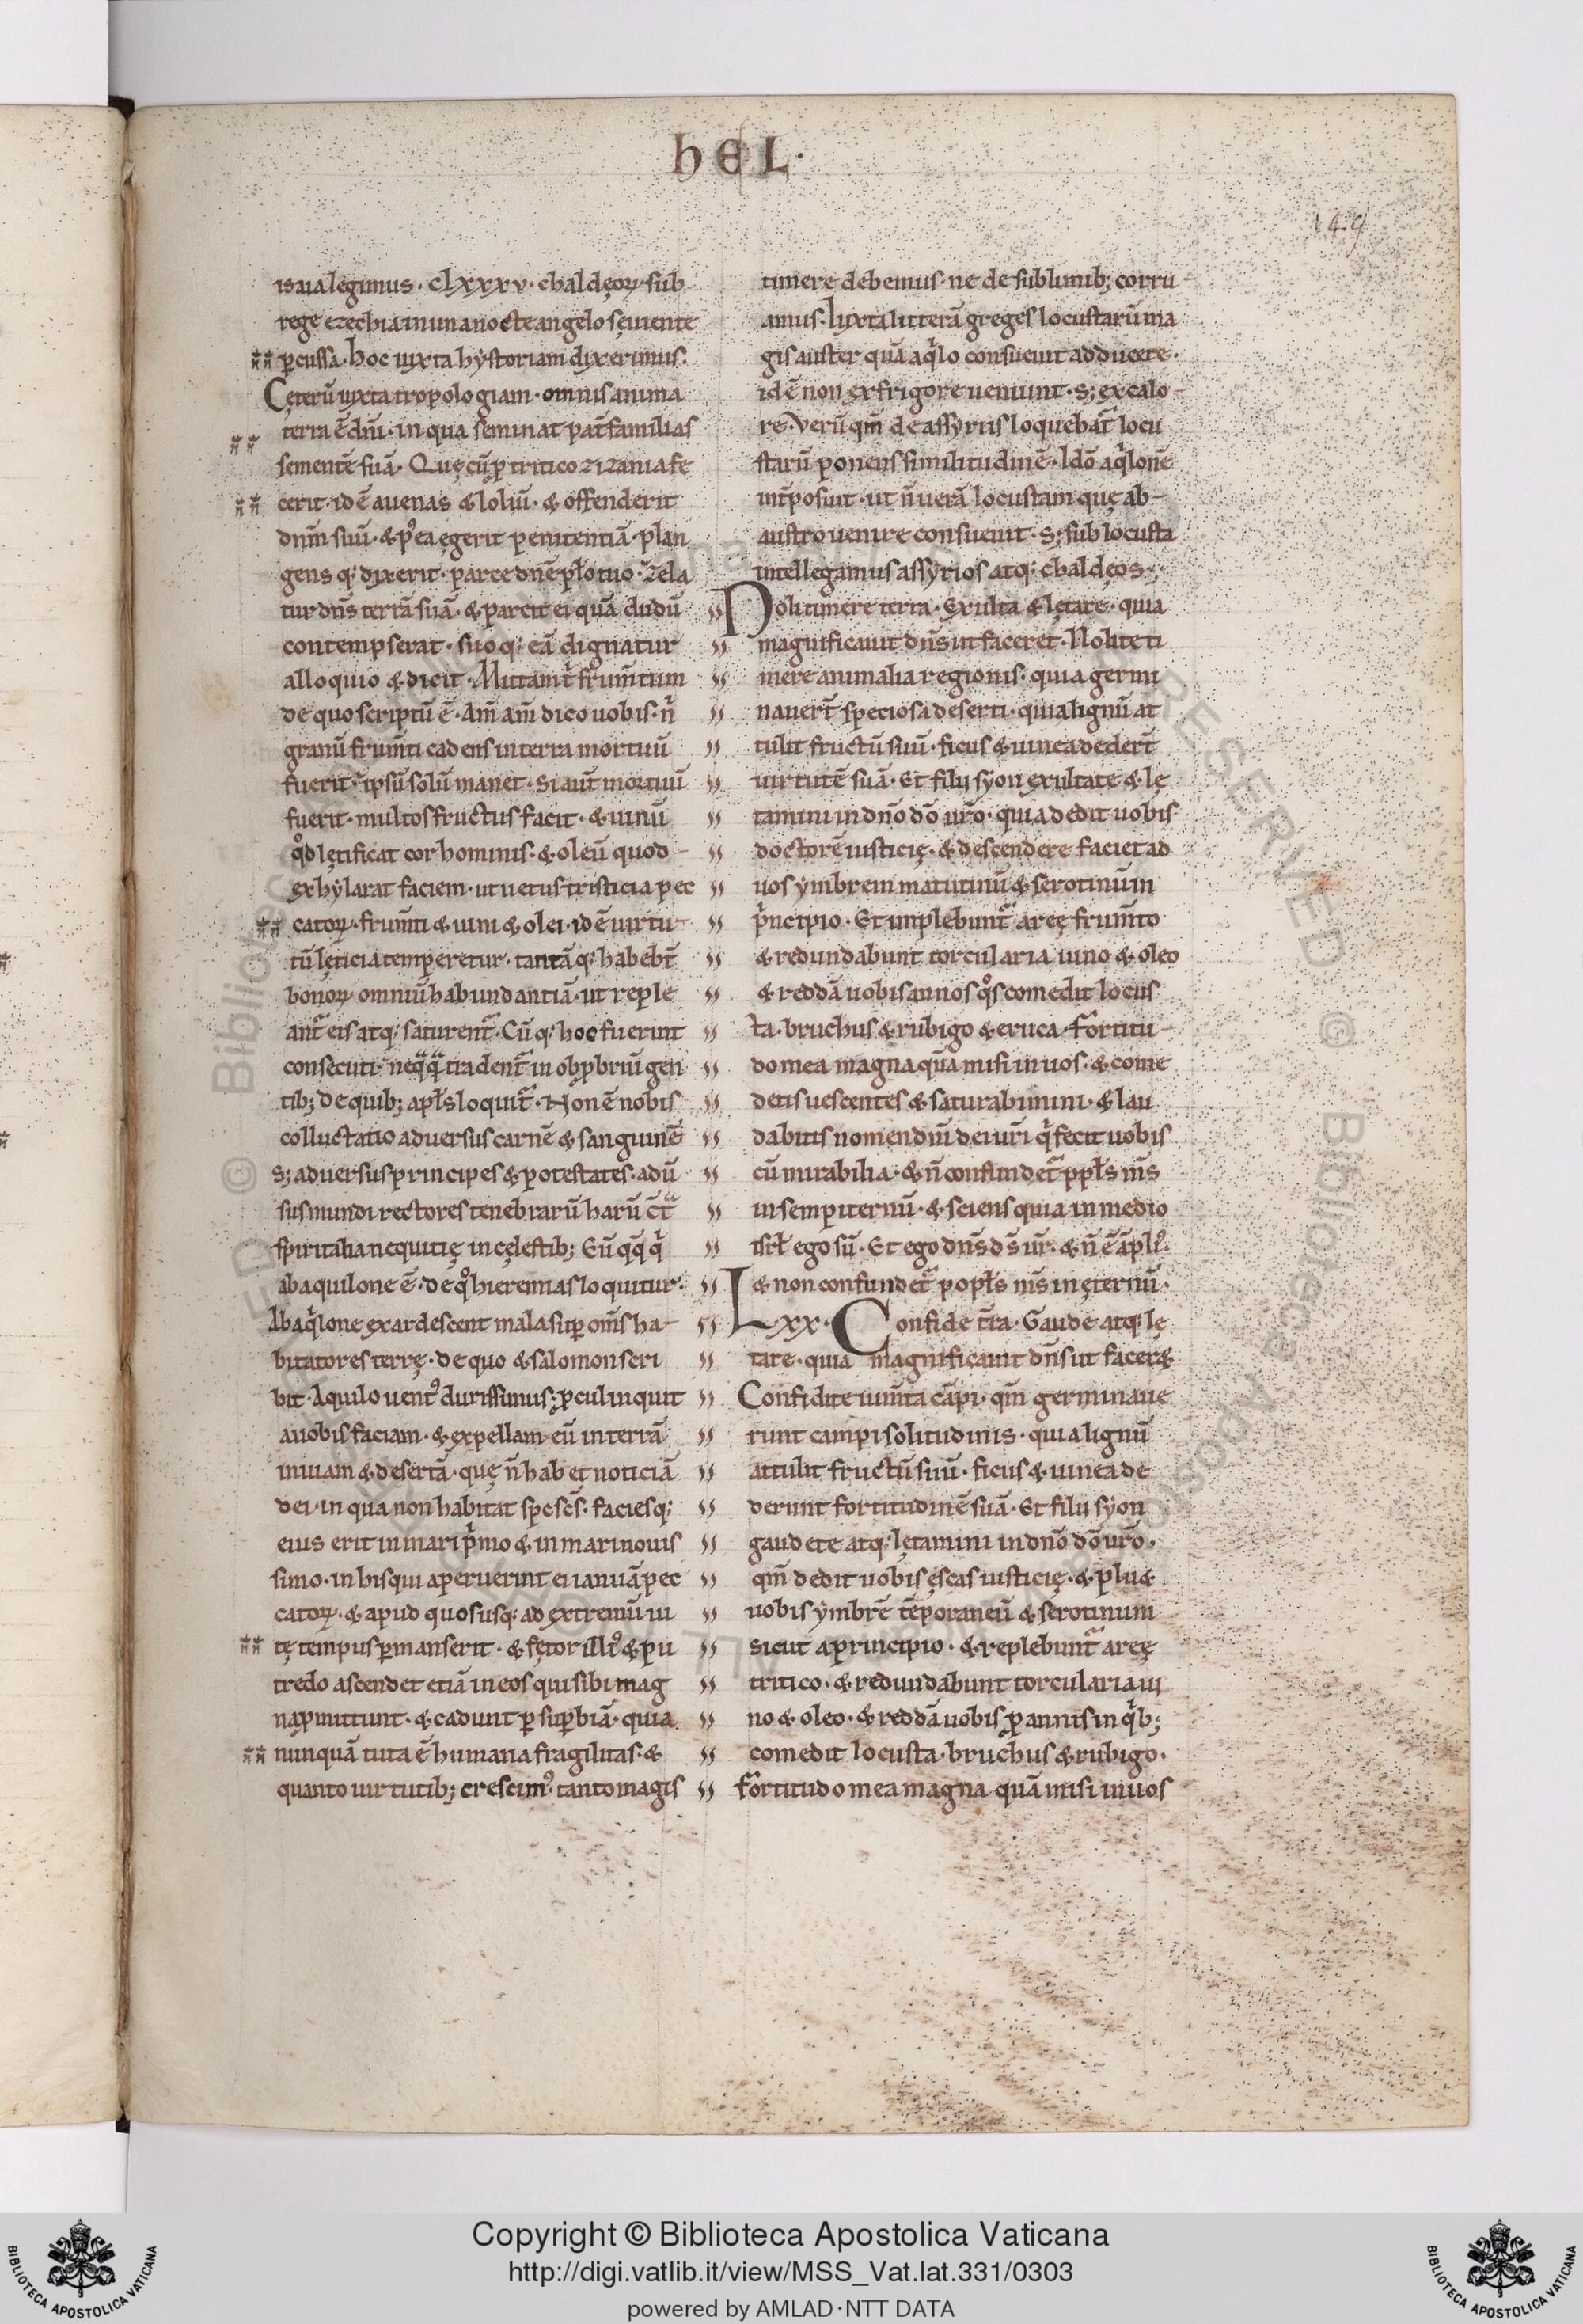 hEL·
149
isaia legimus· clxxxv· chaldęoꝝ· sub
rege ezechia in una nocte angelo sęuiente
ꝑcussa· hoc iuxta hystoriam dixerimus·
Cęterū iuxta tropologiam· omnis anima
terra ē dn̄i· in qua seminat pat̄familias
sementē suā· Quę cū ꝓ tritico zizania fe
cerit· id ē auenas & loliū· & offenderit
dn̄m suū· & p̾ea egerit penitentiā· plan
gensq; dixerit· parce dn̄e pp̄lo tuo· Zela
tur dn̄s terrā suā· & parcit ei quā dudū
contempserat· suoq; eā dignatur
alloquio & dicit· Mittam t̾ frum̄tum
de quo scriptū ē· Am̄ am̄ dico uobis· n̾
granū frum̄ti cadens in terra mortuū
fuerit· ipsū solū manet· Si aut̄ mortuū
fuerit· multos fructus facit· & uinū
qͦd lętificat cor hominis· & oleū quod
exhylarat faciem· ut uetus tristicia pec
catoꝝ· frum̄ti & uini & olei· id ē uirtu
tū lęticia temperetur· tantāq; habeb̄t
bonoꝝ omniū habundantiā· ut reple
ant᷑ eis atq; saturent᷑· Cūq; hoc fuerint
consecuti· neq̄q̄ tradent᷑ in obꝓbriū gen
tib; de quib; apl̄s loquit᷑· Non ē nobis
colluctatio aduersus carnē & sanguinē
s; aduersus principes & potestates· adū
sus mundi rectores tenebrarū harū c̄t̄
spiritalia nequitię in cęlestib; Eū q̄q̄ q̾
ab aquilone ē· de qͦ hieremias loquitur·
Ab aq̾lone exardescent mala sup̱ om̄s ha
bitatores terrę· de quo & salomon scri
bit· Aquilo uent᾽ durissimus; ꝓcul inquit
a uobis faciam· & expellam eū in terrā
inuiam & desertā· quę n̄ habet noticiā
dei· in qua non habitat spes c̄s· faciesq;
eius erit in mari p̾mo & in mari nouis
simo· in his qui aperuerint ei ianuā pec
catoꝝ· & apud quos usq; ad extremū ui
tę tempus ꝑmanserit· & fętor illi᾽ & pu
tredo ascendet etiā in eos qui sibi mag
na ꝓmittunt· & cadunt ꝑ suꝑbiā· quia
nunquā tuta ē humana fragilitas· &
quanto uirtutib; crescim᾽· tanto magis
timere debemus· ne de sublimib; corru
amus· Iuxta litterā greges locustarū ma
gis auster quā aq̾lo consueuit adducere·
id ē non ex frigore ueniunt· s; ex calo
re· Verū qm̄ de assyriis loquebat᷑ locu
starū ponens similitudinē· Idō aq̾lonē
int̄posuit· ut n̄ uerā locustam quę ab
austro uenire consueuit· s; sub locusta
intellegamus assyrios atq; chaldęos·;
Noli timere terra· Exulta & lętare· quia
magnificauit dn̄s ut faceret· Nolite ti
mere animalia regionis· quia germi
nauer̄t speciosa deserti· quia lignū at
tulit fructū suū· ficus & uinea deder̄t
uirtutē suā· Et filii syon exultate & lę
tamini in dn̄o dō ur̄o· quia dedit uobis
doctorē iusticię· & descendere faciet ad
uos ymbrem matutinū & serotinū in
p̾ncipio· Et implebunt᷑ areę frum̄to
& redundabunt torcularia uino & oleo
& reddā uobis annos qͦs comedit locus
ta· bruchus & rubigo & eruca· Fortitu
do mea magna quā misi in uos· & come
detis uescentes & saturabimini· & lau
dabitis nomen dn̄i dei ur̄i q̾ fecit uobis
cū mirabilia· & n̄ confundet᷑ ppl̄s m̄s
in sempiternū· & sciens quia in medio
isrl̄ ego sū· Et ego dn̄s d̄s ur̄· & n̄ ē āpli᾽·
& non confundet᷑ popl̄s m̄s in ęternū·
Lxx· Confide t̄ra· Gaude atq; lę
tare· quia magnificauit dn̄s ut facer&
Confidite ium̄ta cāpi· qm̄ germinaue
runt campi solitudinis· quia lignū
attulit fructū suū· ficus & uinea de
derunt fortitudinē suā· Et filii syon
gaudete atq; lętamini in dn̄o dō ur̄o·
qm̄ dedit uobis ęscas iusticię· & plu&
uobis ymbrē tēporaneū & serotinum
sicut a principio· & replebunt᷑ areę
tritico· & redundabunt torcularia ui
no & oleo· & reddā uobis ꝓ annis in q̾b;
comedit locusta· bruchus & rubigo·
Fortitudo mea magna quā misi in uos
Copyright © Biblioteca Apostolica Vaticana
http://digi.vatlib.it/view/MSS_Vat.lat.331/0303
powered by AMLAD·NTT DATA
BIBLIOTECA APOSTOLICA VATICANA
BIBLIOTECA APOSTOLICA VATICANA